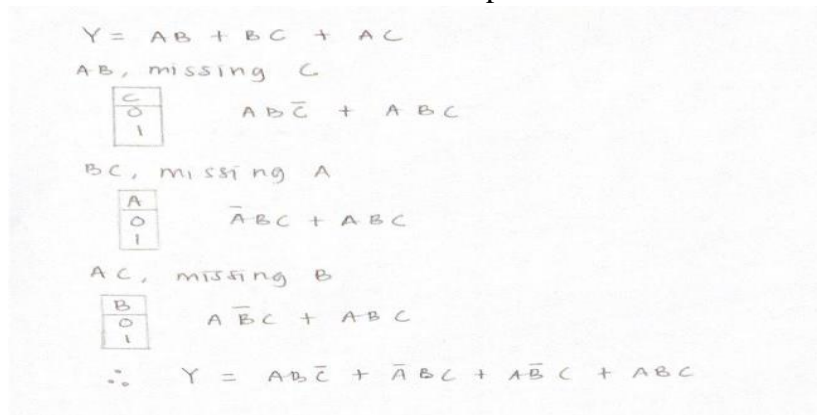 Y = AB + BC + AC
AB, missing C
C
0
1
ABC̅ + ABC
BC, missing A
A
0
1
A̅BC + ABC
AC, missing B
B
0
1
AB̅C + ABC
∴ Y = ABC̅ + A̅BC + AB̅C + ABC